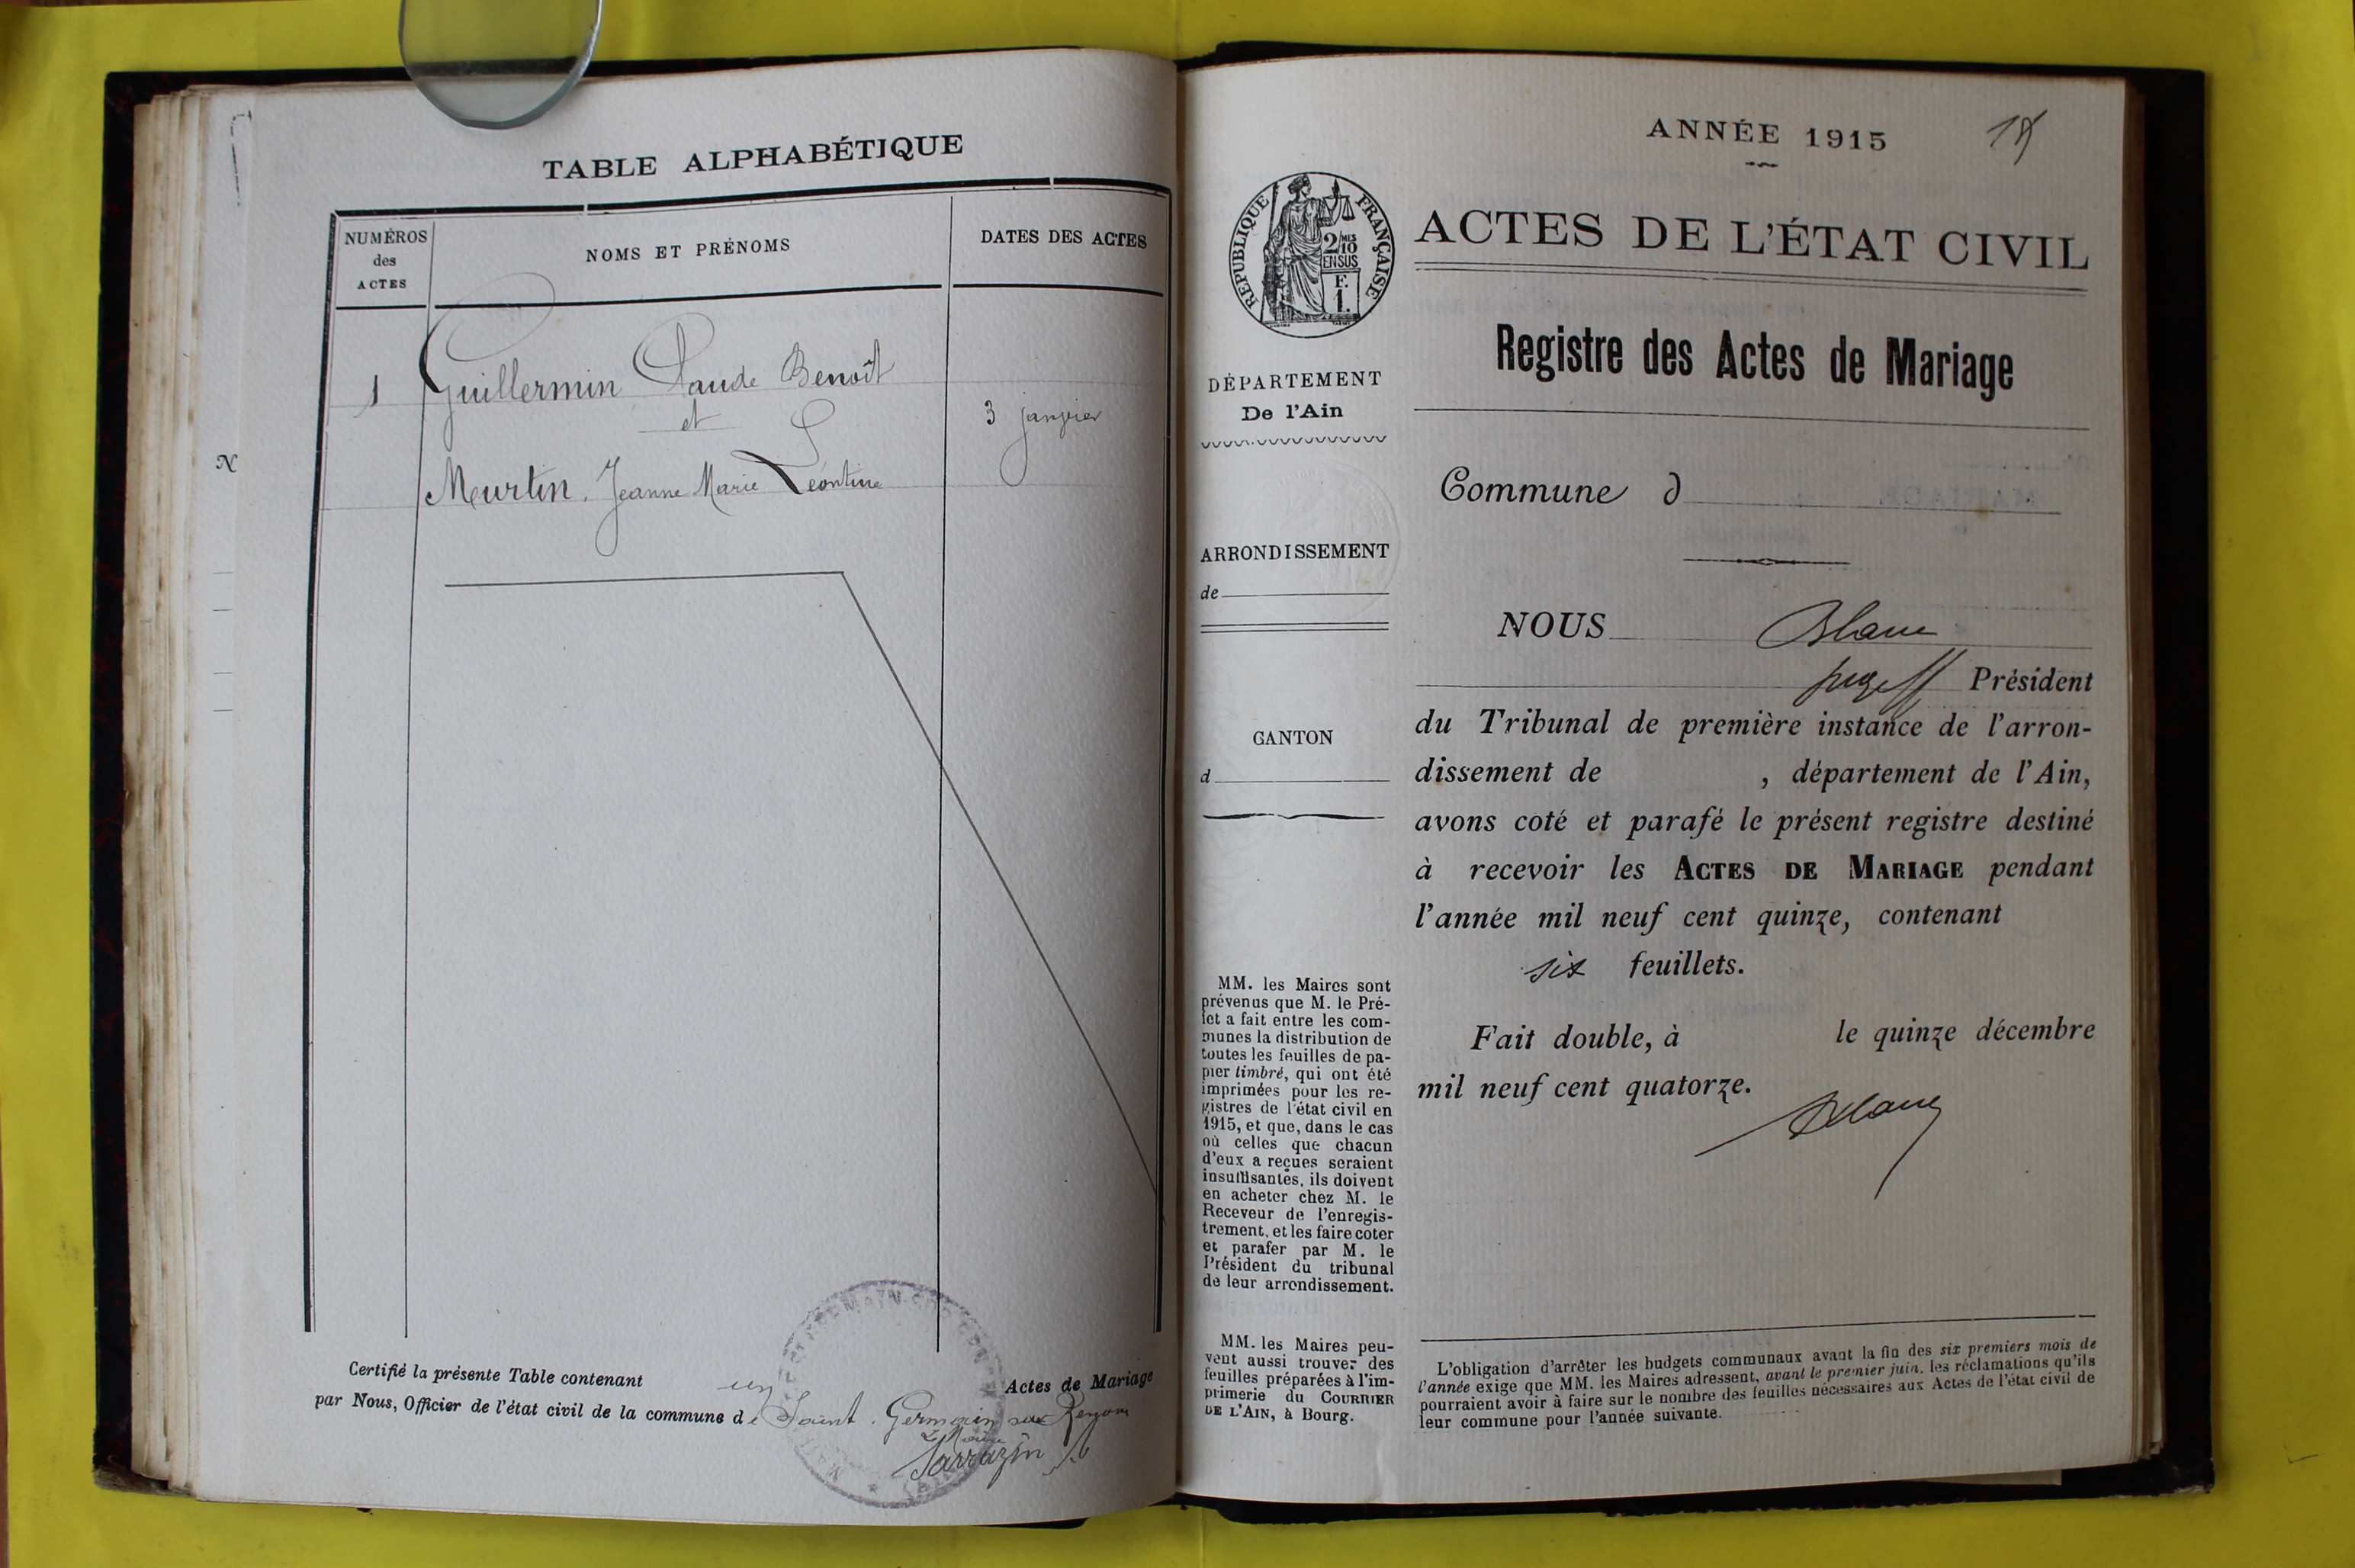 TABLE ALPHABÉTIQUE
NUMÉROS
des
ACTES
NOMS ET PRÉNOMS
DATES DES ACTES
1 Guillermin Claude Benoît
et
3 janvier
Meurtin. Jeanne Marie Léontine
N
Certifié la présente Table contenant un Actes de Mariage
par Nous, Officier de l'état civil de la commune de Saint. Germain sur Renom
Le Maire
Sarrazin
ANNÉE 1915
RÉPUBLIQUE FRANÇAISE
2/10 MES
EN SUS
F.
1.
ACTES DE L'ÉTAT CIVIL
Registre des Actes de Mariage
DÉPARTEMENT
De l'Ain
ARRONDISSEMENT
de
CANTON
d
MM. les Maires sont
prévenus que M. le Pré-
fet a fait entre les com-
munes la distribution de
toutes les feuilles de pa-
pier timbré, qui ont été
imprimées pour les re-
gistres de l'état civil en
1915, et que, dans le cas
où celles que chacun
d'eux a reçues seraient
insuffisantes, ils doivent
en acheter chez M. le
Receveur de l'enregis-
trement, et les faire coter
et parafer par M. le
Président du tribunal
de leur arrondissement.
MM. les Maires peu-
vent aussi trouver des
feuilles préparées à l'im-
primerie du COURRIER
DE L'AIN, à Bourg.
Commune d
NOUS Blanc
juge ff Président
du Tribunal de première instance de l'arron-
dissement de , département de l'Ain,
avons coté et parafé le présent registre destiné
à recevoir les ACTES DE MARIAGE pendant
l'année mil neuf cent quinze, contenant
six feuillets.
Fait double, à le quinze décembre
mil neuf cent quatorze.
Blanc
L'obligation d'arrêter les budgets communaux avant la fin des six premiers mois de
l'année exige que MM. les Maires adressent, avant le premier juin, les réclamations qu'ils
pourraient avoir à faire sur le nombre des feuilles nécessaires aux Actes de l'état civil de
leur commune pour l'année suivante.